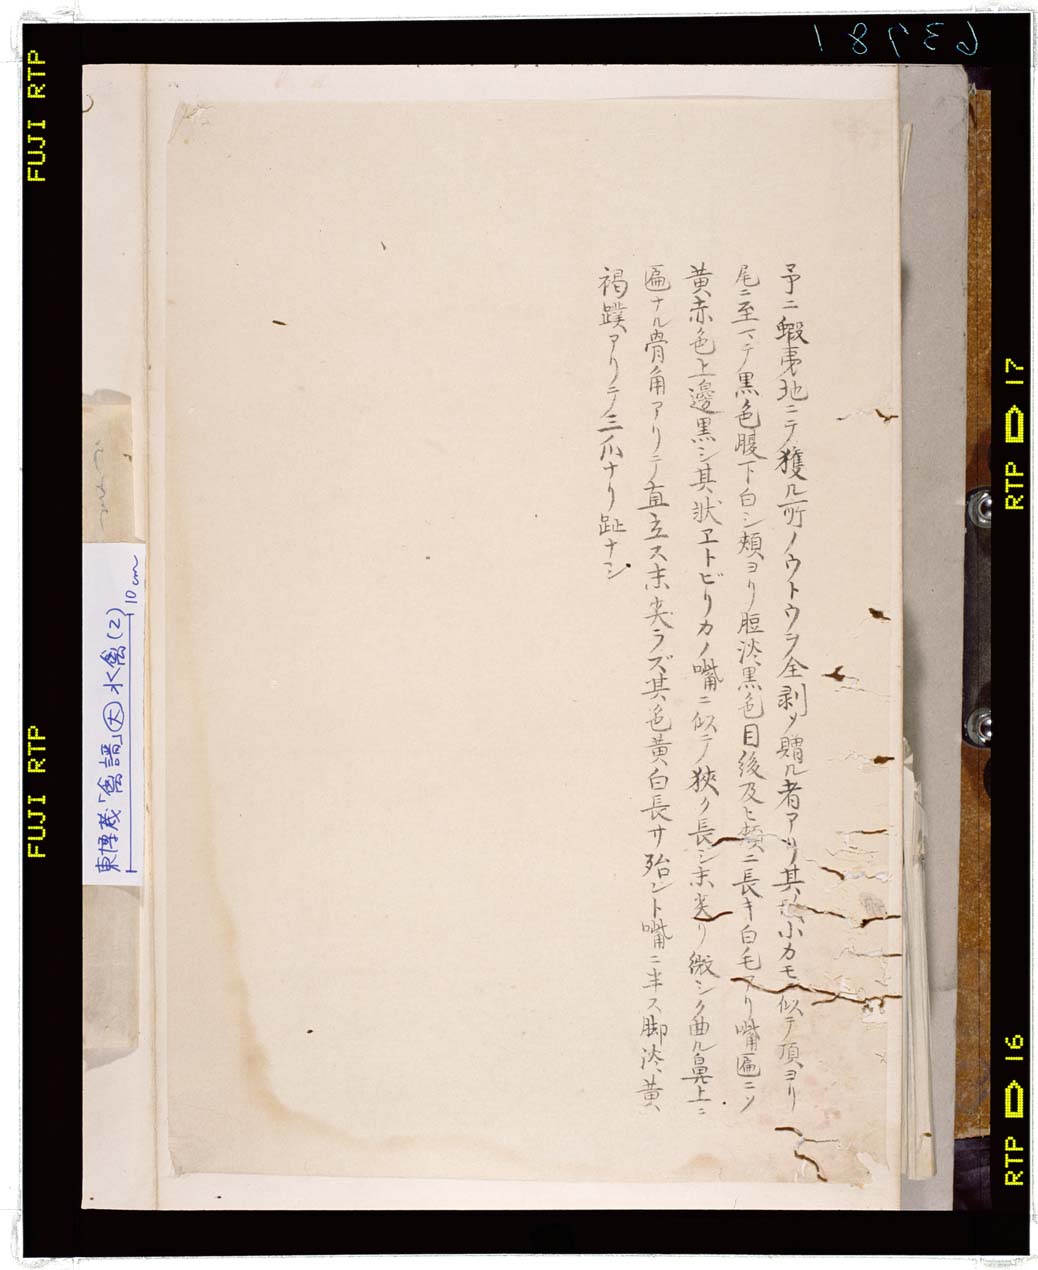 63981
FUJI RTP
FUJI RTP
RTP 17
RTP 16
予ニ蝦夷地ニテ獲ル所ノウトウヲ全剥メ贈ル者アリ其小カモニ似テ頂ヨリ
尾ニ至マテ黒色腹下白シ頬ヨリ脰淡黒色目後及ヒ頬ニ長キ白毛アリ嘴匾ニソ
黄赤色上邊黒シ其状ヱトピリカノ嘴ニ似テ狹ク長シ末尖リ微シク曲ル鼻上ニ
匾ナル骨角アリテ直立ス末尖ラズ其色黄白長サ殆ント嘴ニ半ス脚淡黄
褐蹼アリテ三爪ナリ趾ナシ
東博蔵「禽譜」大 水禽(2)
10cm